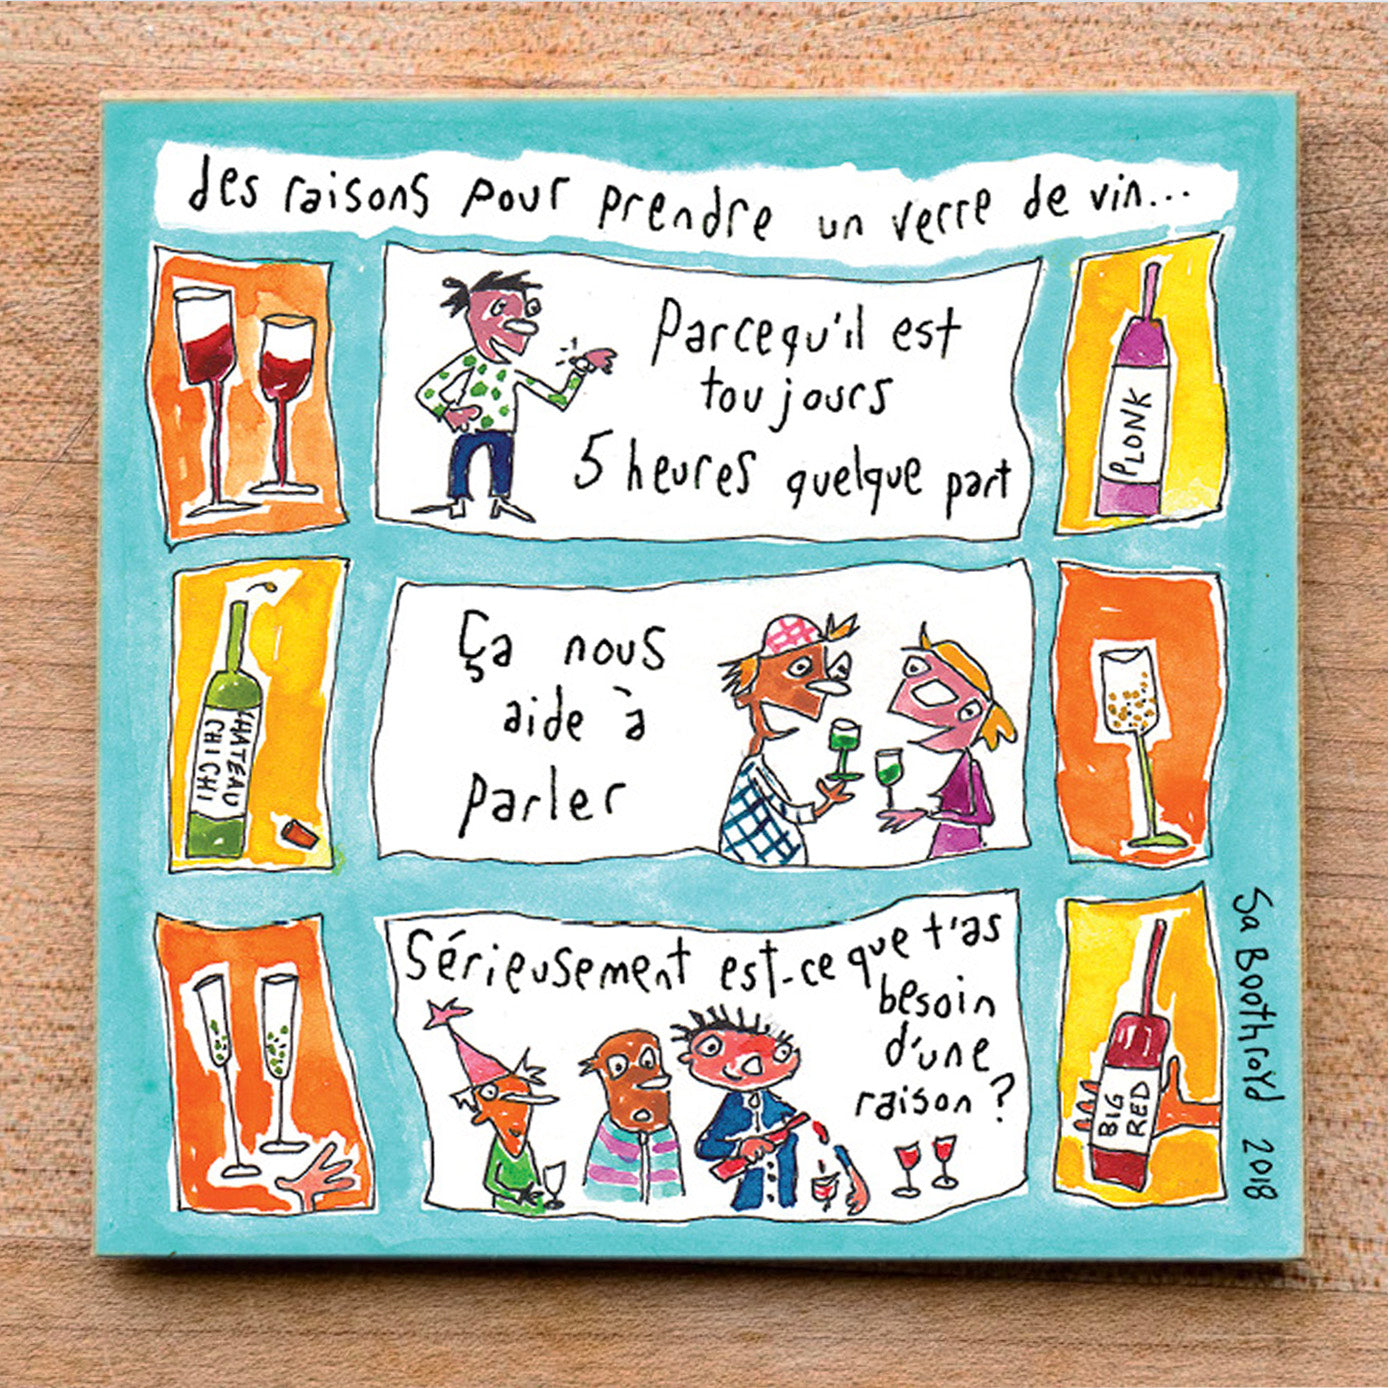 des raisons pour prendre un verre de vin...
Parcequ'il est
toujours
5 heures quelque part
PLONK
CHATEAU
CHICHI
Ça nous
aide à
parler
Sérieusement est-ce que t'as
besoin
d'une
raison?
BIG
RED
Sa Boothroyd 2018